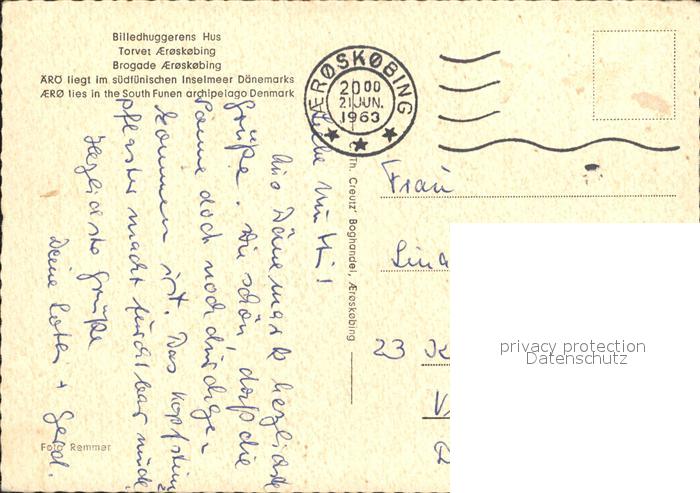 Billedhuggerens Hus
Torvet Ærøskøbing
Brogade Ærøskøbing
ÄRÖ liegt im südfünischen Inselmeer Dänemarks
ÆRØ lies in the South Funen archipelago Denmark
ÆRØSKØBING
20 00
21 JUN.
1963
Liebe Mutti!
Aus Dänemark herzliche
Grüße. Wie schön, daß die
Sonne doch noch durchge-
kommen ist. Das Kopfstein-
pflaster macht furchtbar müde.
Herzliche Grüße
Deine + Gerd.
Th. Creutz' Boghandel, Ærøskøbing
Frau
23
privacy protection
Datenschutz
Foto Remmer